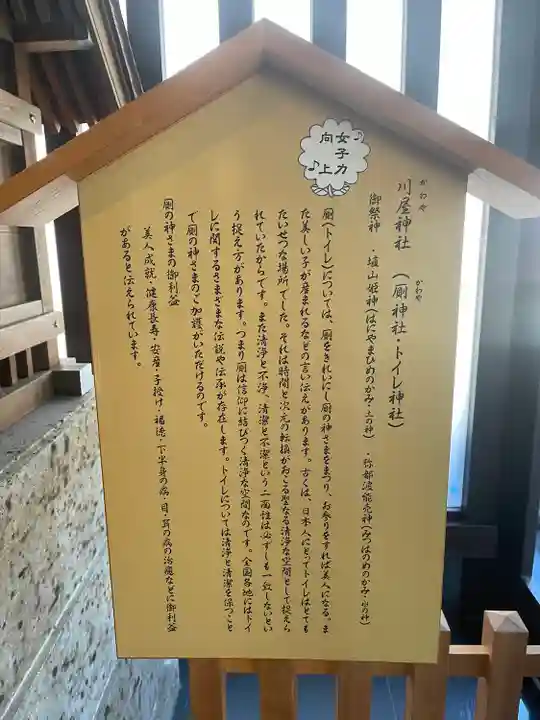 女子力
向上
かわや
かわや
川屋神社 （厠神社・トイレ神社）
御祭神 ・埴山姫神（はにやまひめのかみ・土の神） ・弥都波能売神（みつはのめのかみ・水の神）
厠（トイレ）については、「厠をきれいにし厠の神さまをまつり、お参りをすれば美人になる。ま
た美しい子が産まれるなどの言い伝えがあります。古くは、日本人にとってトイレはとても
たいせつな場所でした。それは時間と次元の転換がおこる聖なる清浄な空間として捉えら
れていたからです。また清浄と不浄、清潔と不潔という二面性は必ずしも一致しないとい
う捉え方があります。つまり厠は信仰に結びつく清浄な空間なのです。全国各地にはトイ
レに関するさまざまな伝説や伝承が存在します。トイレについては清浄と清潔を保つこと
で厠の神さまのご加護がいただけるのです。
厠の神さまの御利益
美人成就・健康長寿・安産・子授け・福徳・下半身の病・目・耳の病の治癒などに御利益
があると伝えられています。